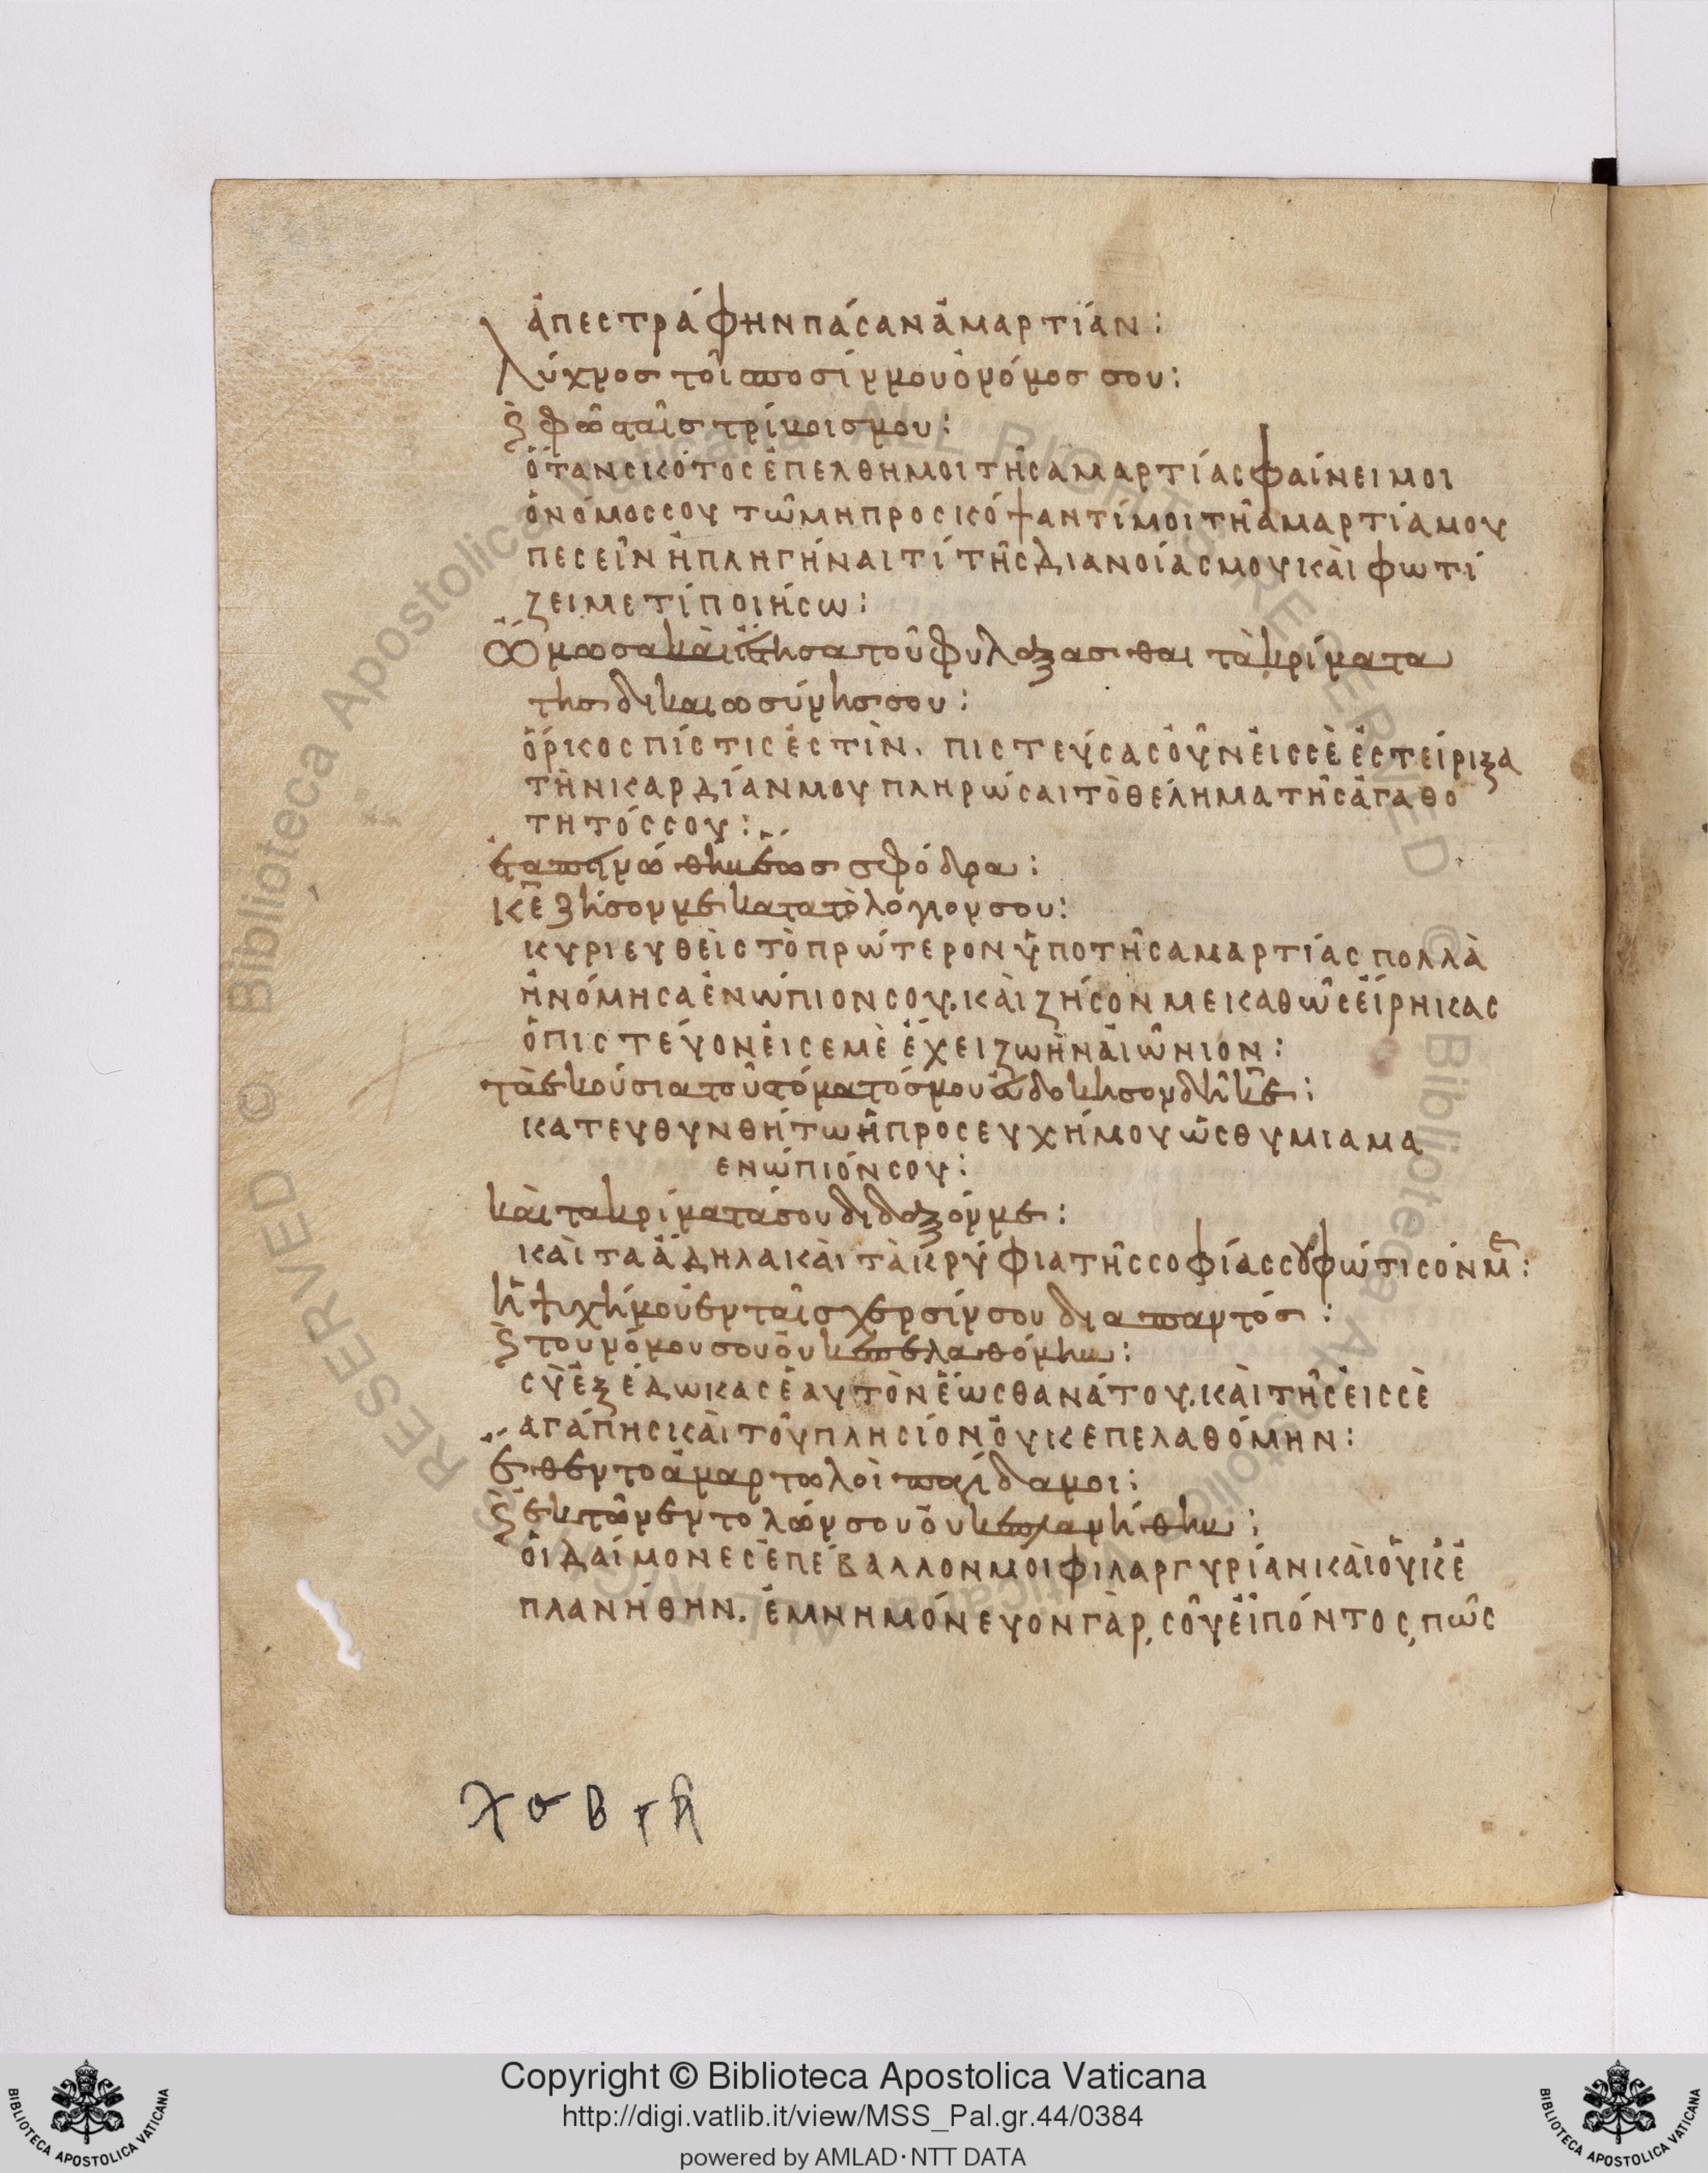 ἀπεστράφην πάσαν ἁμαρτίαν :
λύχνοσ τοῖσ ποσίν μου ὁ νόμοσ σου :
ϗ φῶσ ταῖσ τρίβοισ μου :
ὅταν σκότος ἐπελθη μοι τῆς αμαρτίας φαίνει μοι
ὁ νόμος σου τῶ μὴ προσκόψαντί μοι τῆ ἁμαρτία μου
πεσεῖν ἢ πληγήναι τί τῆς διανοίας μου καὶ φωτί
ζει με τί ποιήσω :
ὤμωσα καὶ ἔστησα τοῦ φυλάξασθαι τὰ κρίματα
τησ δικαιωσύνησ σου :
ὅρκος πίστις ἐστὶν. πιστεύσας οὖν εἰς σὲ ἐστείριξα
τὴν καρδίαν μου πληρώσαι τὸ θέλημα τῆς ἀγαθο
τητός σου :
ἐταπεινώθην ἕωσ σφόδρα :
κε ζήσον με κατα τὸ λόγιον σου :
κυριευθεὶς τὸ πρώτερον ὑπο τῆς αμαρτίας πολλὰ
ἠνόμησα ἐνώπιον σου. καὶ ζήσον με καθῶς εἴρηκας
ὁ πιστεύον εἰς εμὲ ἔχει ζωὴν αἰῶνιον :
τὰ ἑκούσια τοῦ στόματόσ μου εὐδοκησον δὴ κε :
κατευθυνθήτω ἡ προσευχή μου ὡς θυμιαμα
ενώπιόν σου :
καὶ τα κρίματά σου διδαξόν με :
καὶ τα ἄδηλα καὶ τὰ κρύφια τῆς σοφίας σου φώτισόν με :
ἡ ψυχή μου ἐν ταῖσ χερσίν σου δια παντόσ :
ϗ του νόμου σου οὐκ ἐπελαθόμην :
σὺ ἐξέδωκας ἑαυτὸν ἕως θανάτου. καὶ τῆς εἰς σὲ
αγάπης καὶ τοῦ πλησίον οὐκ επελαθόμην :
ἔθεντο ἁμαρτωλοὶ παγίδα μοι :
ϗ ἐκ τῶν ἐντολῶν σου οὐκ ἐπλανήθην :
οἱ δαίμονες ἐπέβαλλον μοι φιλαργυρίαν καὶ οὐκ ἐ
πλανήθην. ἐμνημόνευον γὰρ, σοῦ εἰπόντος, πῶς
Copyright © Biblioteca Apostolica Vaticana
http://digi.vatlib.it/view/MSS_Pal.gr.44/0384
powered by AMLAD·NTT DATA
BIBLIOTECA APOSTOLICA VATICANA
BIBLIOTECA APOSTOLICA VATICANA